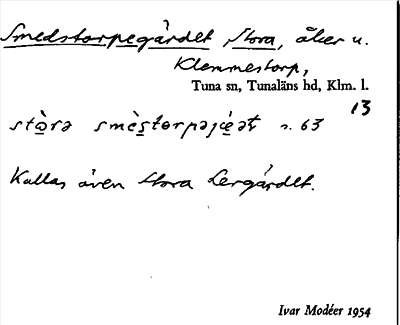 Smedstorpegärdet Stora, åker u.
Klemmestorp,
Tuna sn, Tunaläns hd, Klm. l.
13
s. 63
Kallas även Stora Lergärdet.
Ivar Modéer 1954